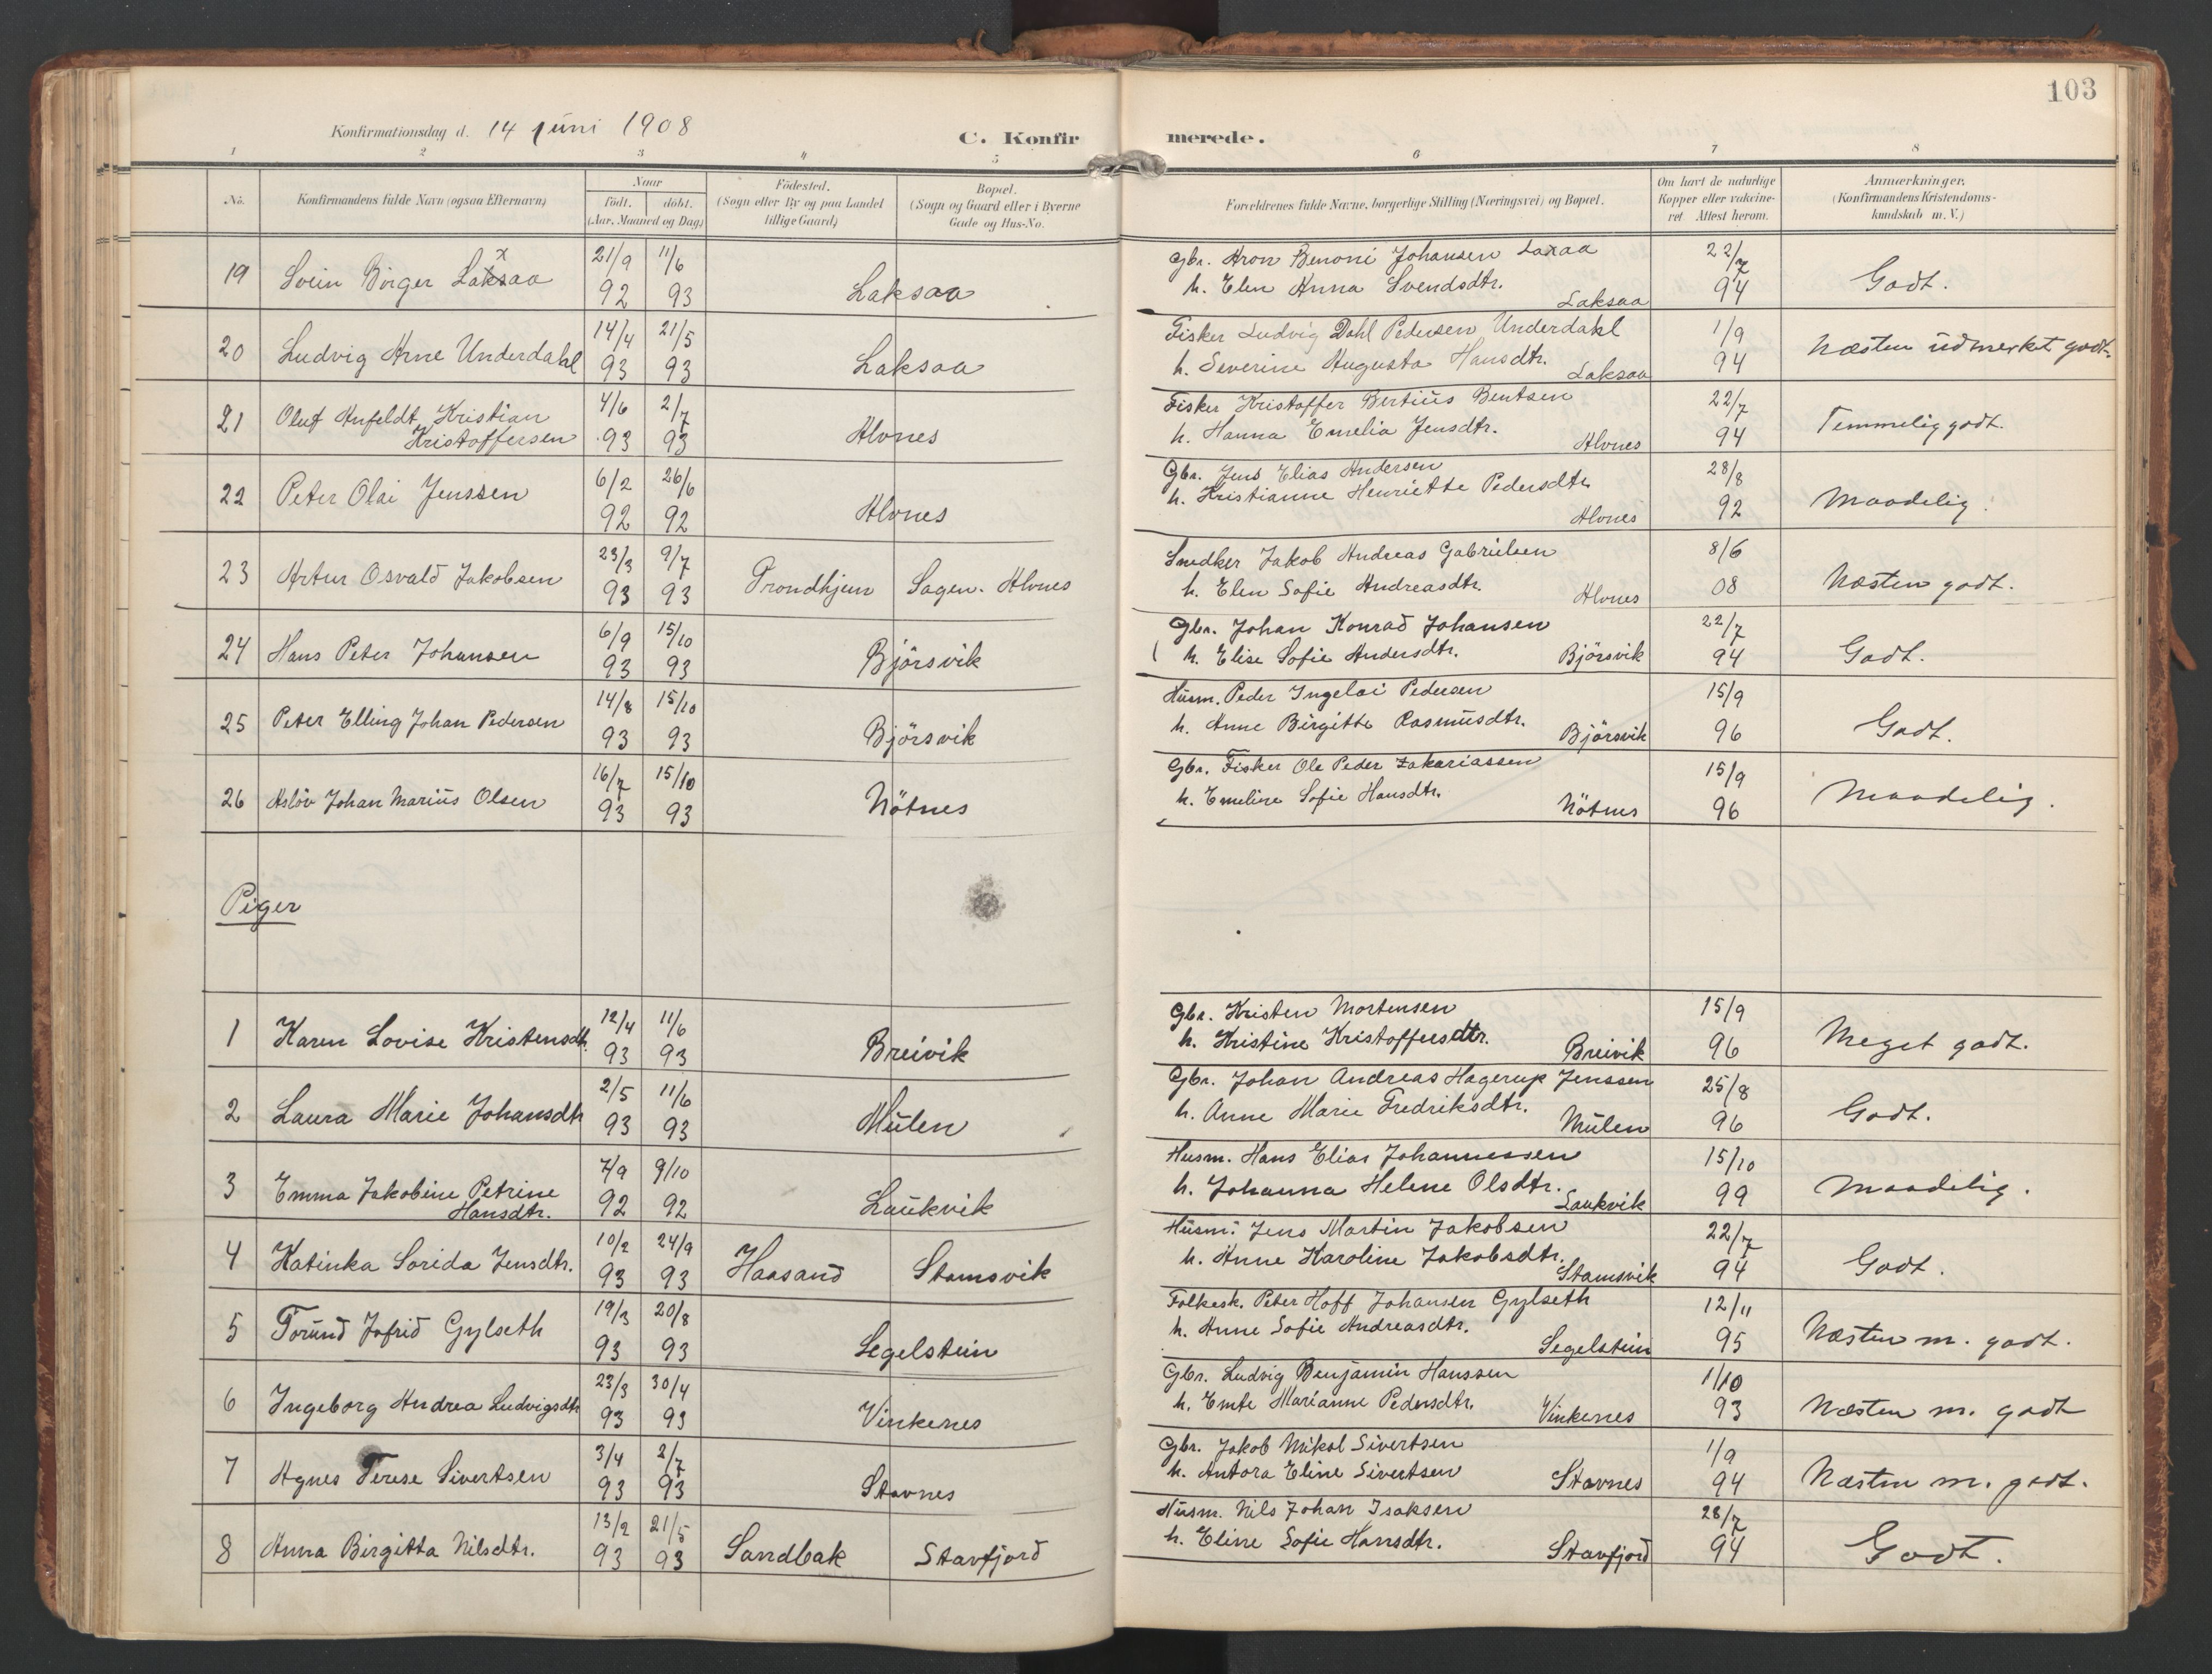 103
Konfirmationsdag d. 14 juni 1908
C. Konfirmerede.
1 2 3 4 5 6 7 8
No. Konfirmandens fulde Navn (ogsaa Efternavn) Naar födt. döbt. (Aar, Maaned og Dag) Födested. (Sogn eller By og paa Landet tillige Gaard) Bopæl. (Sogn og Gaard eller i Byerne Gade og Hus-No. Forældrenes fulde Navne, borgerlige Stilling (Næringsvei) og Bopæl. Om havt de naturlige Kopper eller vakcineret Attest herom. Anmærkninger. (Konfirmandens Kristendomskundskab m. V.)
19 Svein Birger Laksaa x 21/9 92 11/6 93 Laksaa Gbr. Aron Benoni Johansen Laxaa h. Elen Anna Svendsdtr. Laksaa 22/7 94 Godt.
20 Ludvig Arne Underdahl 14/4 93 21/5 93 Laksaa Fisker Ludvig Dahl Pedersen Underdahl h. Severine Augusta Hansdtr. Laksaa 1/9 94 Næsten udmerket godt.
21 Oluf Anfeldt Kristian Kristoffersen 4/6 93 2/7 93 Alvnes Fisker Kristoffer Bertius Bentsen h. Hanna Emelia Jensdtr. Alvnes 22/7 94 Temmelig godt.
22 Peter Olai Jenssen 6/2 92 26/6 92 Alvnes Gbr. Jens Elias Andersen h. Kristianne Henriette Pedersdtr. Alvnes 28/8 92 Maadelig.
23 Artur Osvald Jakobsen 23/3 93 9/7 93 Trondhjem Sagen. Alvnes Snedker Jakob Andreas Gabrielsen h. Elen Sofie Andreasdtr. Alvnes 8/6 08 Næsten godt.
24 Hans Peter Johansen 6/9 93 15/10 93 Björsvik Gbr. Johan Konrad Johansen h. Elise Sofie Andersdtr. Björsvik 22/7 94 Godt.
25 Peter Elling Johan Pedersen 14/8 93 15/10 93 Björsvik Husm. Peder Ingeloi Pedersen h. Anne Birgitte Rasmusdtr. Björsvik 15/9 96 Godt.
26 Aslöv Johan Marius Olsen 16/7 93 15/10 93 Nötnes Gbr. Fisker Ole Peder Zakariassen h. Emeline Sofie Hansdtr. Nötnes 15/9 96 Maadelig.
Piger
1 Karen Lovise Kristensdtr. 12/4 93 11/6 93 Breivik Gbr. Kristen Mortensen h. Kristine Kristoffersdtr. Breivik 15/9 96 Meget godt.
2 Laura Marie Johansdtr 2/5 93 11/6 93 Mulen Gbr. Johan Andreas Hagerup Jenssen h. Anne Marie Fredriksdtr. Mulen 25/8 96 Godt.
3 Emma Jakobine Petrine Hansdtr. 7/9 92 9/10 92 Laukvik Husm. Hans Elias Johannessen h. Johanna Helene Olsdtr. Laukvik 15/10 99 Maadelig.
4 Katinka Sorida Jensdtr. 10/2 93 24/9 93 Haasand Stamsvik Husm. Jens Martin Jakobsen h. Anne Karoline Jakobsdtr. Stamsvik 22/7 94 Godt.
5 Torund Jofrid Gylseth 19/3 93 20/8 93 Segelstein Folkesk. Peter Hoff Johansen Gylseth h. Anne Sofie Andreasdtr. Segelstein 12/11 95 Næsten m. godt.
6 Ingeborg Andrea Ludvigsdtr 23/3 93 30/4 93 Vinkenes Gbr. Ludvig Benjamin Hanssen h. Emte Marianne Pedersdtr. Vinkenes 1/10 93 Næsten m. godt
7 Agnes Terese Sivertsen 3/4 93 2/7 93 Stavnes Gbr. Jakob Mikal Sivertsen h. Antora Eline Sivertsen Stavnes 1/9 94 Næsten m. godt.
8 Anna Birgitta Nilsdtr. 13/2 93 21/5 93 Sandbak Stavfjord Husm. Nils Johan Isaksen h. Eline Sofie Hansdtr. Stavfjord 28/7 94 Godt.